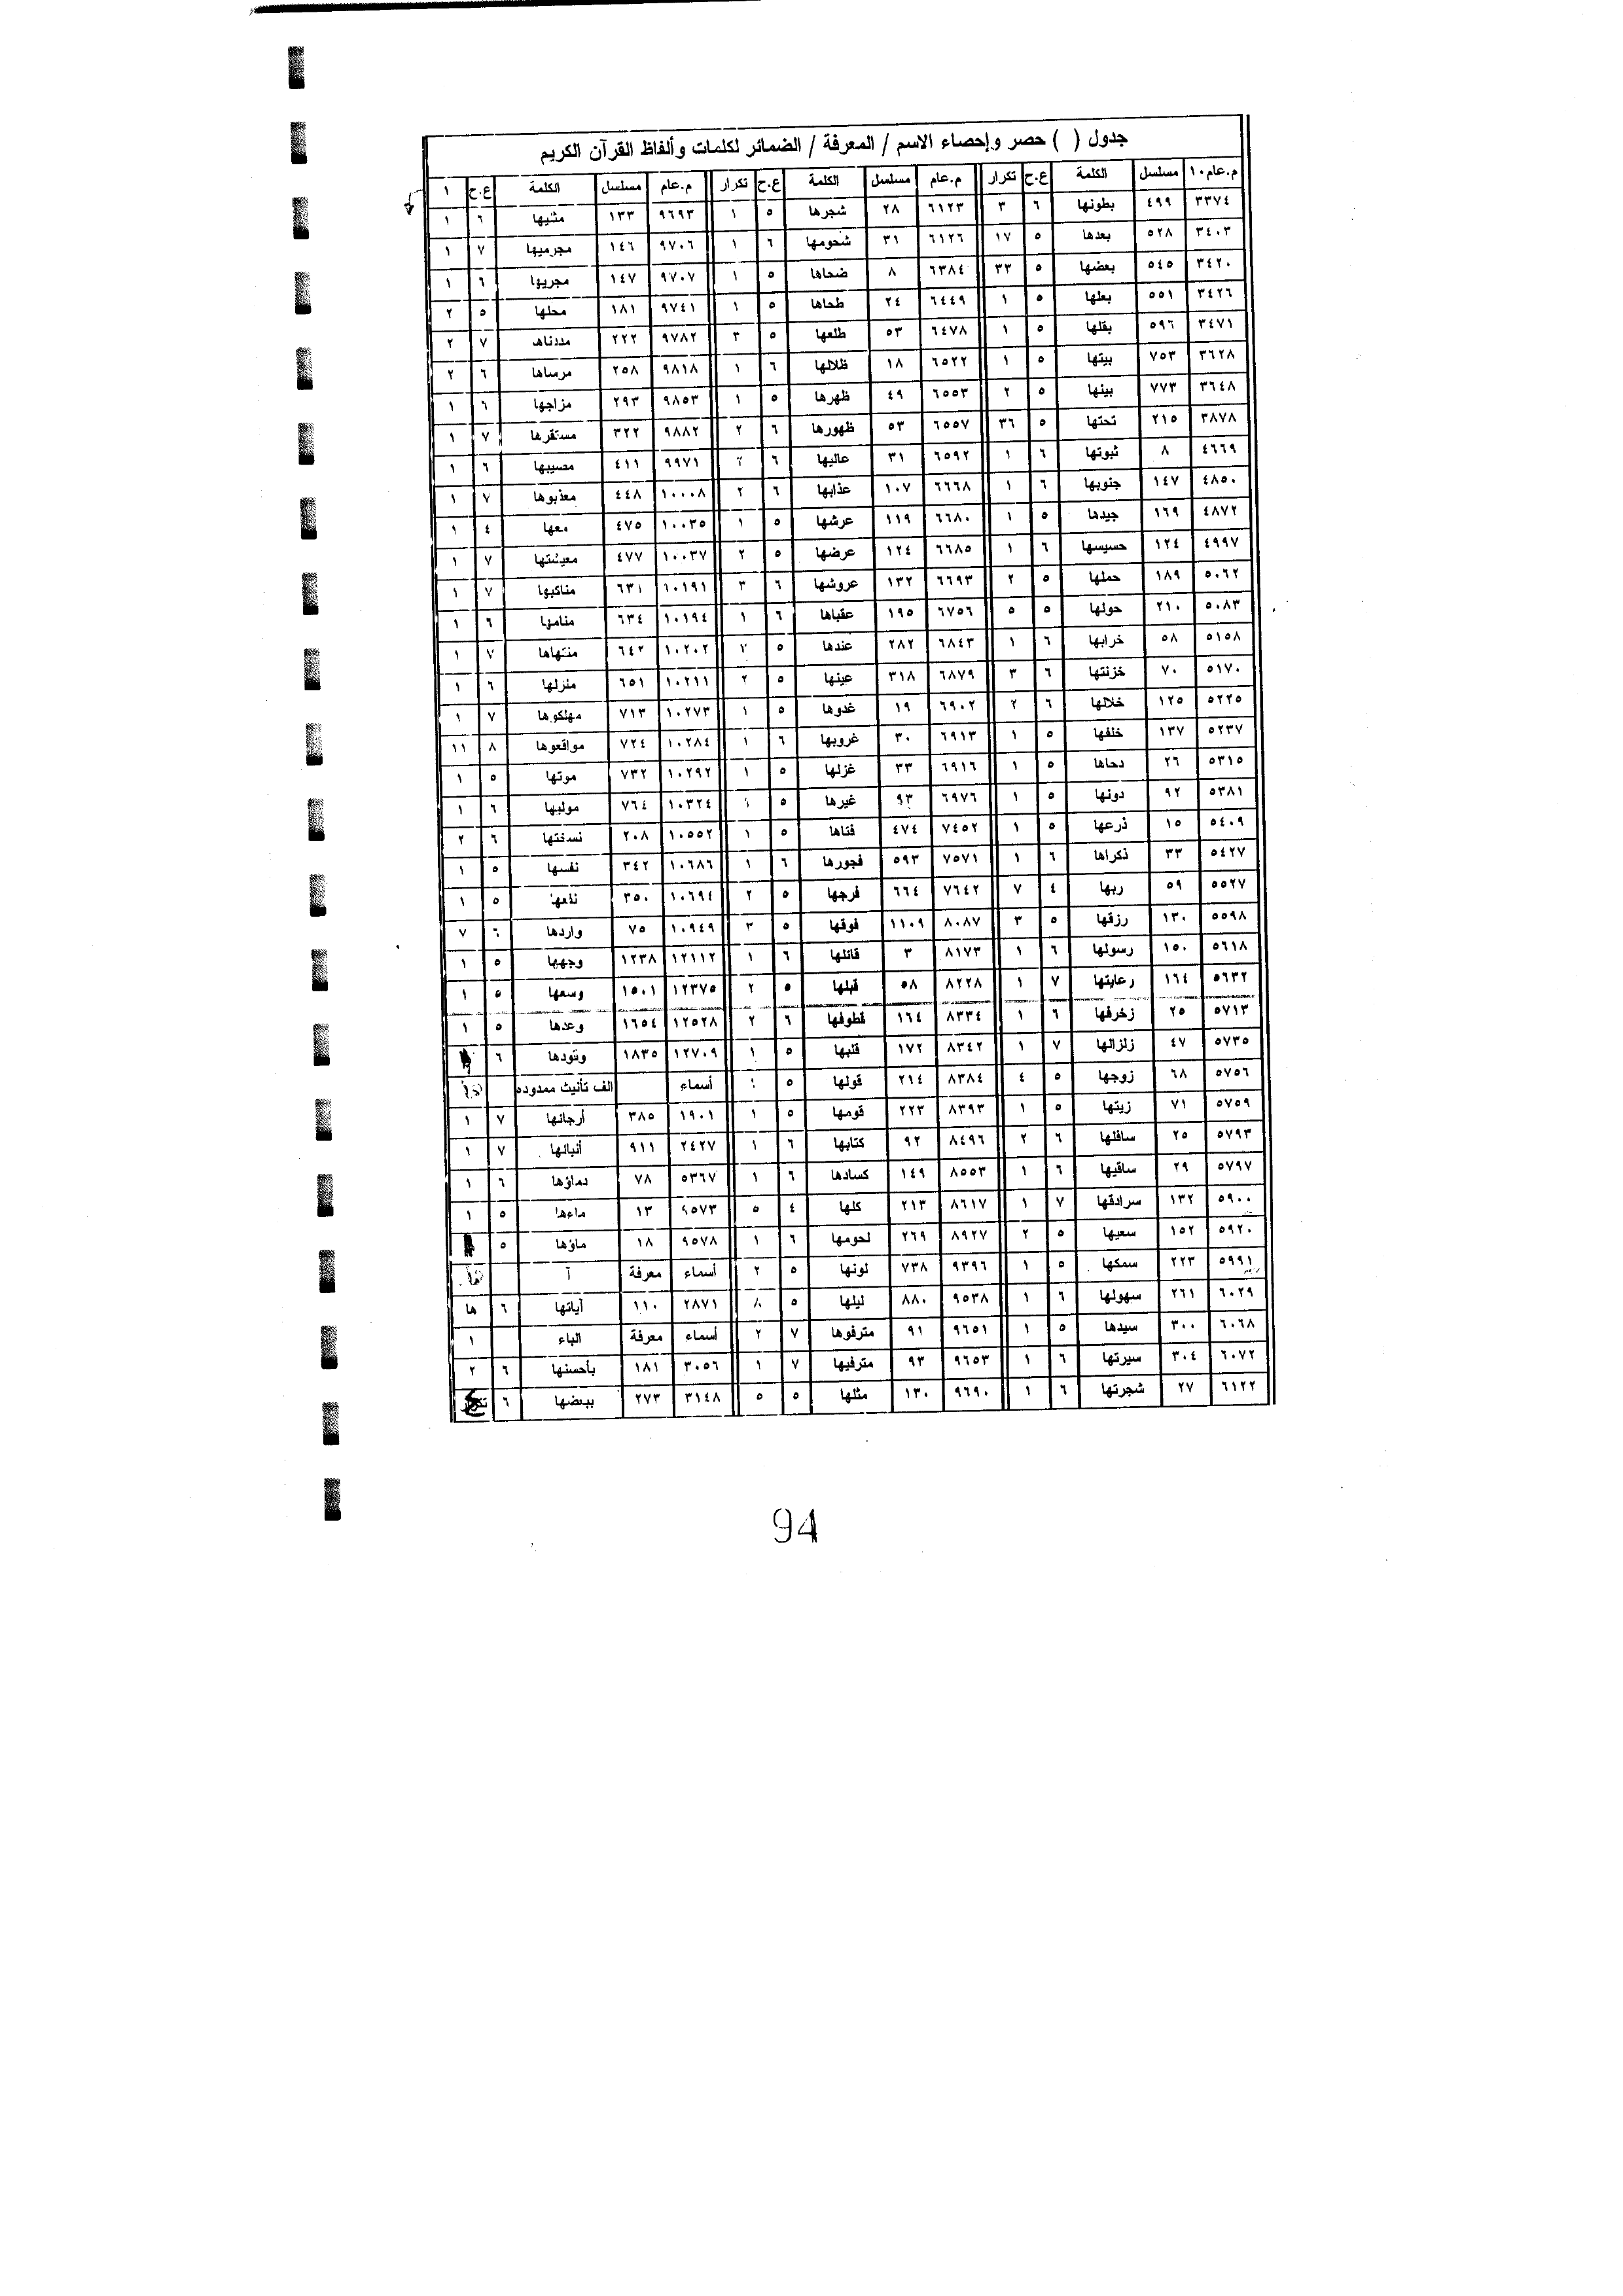 جدول ( ) حصر وإحصاء الاسم / المعرفة / الضمائر لكلمات وألفاظ القرآن الكريم
م.عام١٠ مسلسل الكلمة ع.ح تكرار م.عام مسلسل الكلمة ع.ح تكرار م.عام مسلسل الكلمة ع.ح ١
٣٣٧٤ ٤٩٩ بطونها ٦ ٣ ٦١٢٣ ٢٨ شجرها ٥ ١ ٩٦٩٣ ١٣٣ مثليها ٦ ١
٣٤٠٣ ٥٢٨ بعدها ٥ ١٧ ٦١٢٦ ٣١ شحومها ٦ ١ ٩٧٠٦ ١٤٦ مجرميها ٧ ١
٣٤٢٠ ٥٤٥ بعضها ٥ ٣٣ ٦٣٨٤ ٨ ضحاها ٥ ١ ٩٧٠٧ ١٤٧ مجريها ٦ ١
٣٤٢٦ ٥٥١ بعلها ٥ ١ ٦٤٤٩ ٢٤ طحاها ٥ ١ ٩٧٤١ ١٨١ محلها ٥ ٢
٣٤٧١ ٥٩٦ بقلها ٥ ١ ٦٤٧٨ ٥٣ طلعها ٥ ٣ ٩٧٨٢ ٢٢٢ مددناه ٧ ٢
٣٦٢٨ ٧٥٣ بيتها ٥ ١ ٦٥٢٢ ١٨ ظلالها ٦ ١ ٩٨١٨ ٢٥٨ مرساها ٦ ٢
٣٦٤٨ ٧٧٣ بينها ٥ ٢ ٦٥٥٣ ٤٩ ظهرها ٥ ١ ٩٨٥٣ ٢٩٣ مزاجها ٦ ١
٣٨٧٨ ٢١٥ تحتها ٥ ٣٦ ٦٥٥٧ ٥٣ ظهورها ٦ ٢ ٩٨٨٢ ٣٢٢ مستقرها ٧ ١
٤٦٦٩ ٨ ثبوتها ٦ ١ ٦٥٩٢ ٣١ عاليها ٦ ٩٩٧١ ٤١١ مصيبها ٦ ١
٤٨٥٠ ١٤٧ جنوبها ٦ ١ ٦٦٦٨ ١٠٧ عذابها ٦ ٢ ١٠٠٠٨ ٤٤٨ معذبوها ٧ ١
٤٨٧٢ ١٦٩ جيدها ٥ ١ ٦٦٨٠ ١١٩ عرشها ٥ ١ ١٠٠٣٥ ٤٧٥ معها ٤ ١
٤٩٩٧ ١٢٤ حسيسها ٦ ١ ٦٦٨٥ ١٢٤ عرضها ٥ ٢ ١٠٠٣٧ ٤٧٧ معيشتها ٧ ١
٥٠٦٢ ١٨٩ حملها ٥ ٢ ٦٦٩٣ ١٣٢ عروشها ٦ ٣ ١٠١٩١ ٦٣١ مناكبها ٧ ١
٥٠٨٣ ٢١٠ حولها ٥ ٥ ٦٧٥٦ ١٩٥ عقباها ٦ ١ ١٠١٩٤ ٦٣٤ منامها ٦ ١
٥١٥٨ ٥٨ خرابها ٦ ١ ٦٨٤٣ ٢٨٢ عندها ٥ ١٠٢٠٢ ٦٤٢ منتهاها ٧ ١
٥١٧٠ ٧٠ خزنتها ٦ ٣ ٦٨٧٩ ٣١٨ عينها ٥ ٢ ١٠٢١١ ٦٥١ منزلها ٦ ١
٥٢٢٥ ١٢٥ خلالها ٦ ٢ ٦٩٠٢ ١٩ غدوها ٥ ١ ١٠٢٧٣ ٧١٣ مهلكوها ٧ ١
٥٢٣٧ ١٣٧ خلفها ٥ ١ ٦٩١٣ ٣٠ غروبها ٦ ١ ١٠٢٨٤ ٧٢٤ مواقعوها ٨ ١١
٥٣١٥ ٢٦ دحاها ٥ ١ ٦٩١٦ ٣٣ غزلها ٥ ١ ١٠٢٩٢ ٧٣٢ موتها ٥ ١
٥٣٨١ ٩٢ دونها ٥ ١ ٦٩٧٦ ٩٣ غيرها ٥ ١٠٣٢٤ ٧٦٤ موليها ٦ ١
٥٤٠٩ ١٥ ذرعها ٥ ١ ٧٤٥٢ ٤٧٤ فتاها ٥ ١ ١٠٥٥٢ ٢٠٨ نسختها ٦ ٢
٥٤٢٧ ٣٣ ذكراها ٦ ١ ٧٥٧١ ٥٩٣ فجورها ٦ ١ ١٠٦٨٦ ٣٤٢ نفسها ٥ ١
٥٥٢٧ ٥٩ ربها ٤ ٧ ٧٦٤٢ ٦٦٤ فرجها ٥ ٢ ١٠٦٩٤ ٣٥٠ نفعها ٥ ١
٥٥٩٨ ١٣٠ رزقها ٥ ٣ ٨٠٨٧ ١١٠٩ فوقها ٥ ٣ ١٠٩٤٩ ٧٥ واردها ٦ ٧
٥٦١٨ ١٥٠ رسولها ٦ ١ ٨١٧٣ ٣ قائلها ٦ ١ ١٢١١٢ ١٢٣٨ وجهها ٥ ١
٥٦٣٢ ١٦٤ رعايتها ٧ ١ ٨٢٢٨ ٥٨ قبلها ٥ ٢ ١٢٣٧٥ ١٥٠١ وسعها ٥ ١
٥٧١٣ ٢٥ زخرفها ٦ ١ ٨٣٣٤ ١٦٤ قطوفها ٦ ٢ ١٢٥٢٨ ١٦٥٤ وعدها ٥ ١
٥٧٣٥ ٤٧ زلزالها ٧ ١ ٨٣٤٢ ١٧٢ قلبها ٥ ١ ١٢٧٠٩ ١٨٣٥ وقودها ٦
٥٧٥٦ ٦٨ زوجها ٥ ٤ ٨٣٨٤ ٢١٤ قولها ٥ أسماء الف تأنيث ممدوده
٥٧٥٩ ٧١ زيتها ٥ ١ ٨٣٩٣ ٢٢٣ قومها ٥ ١ ١٩٠١ ٣٨٥ أرجائها ٧ ١
٥٧٩٣ ٢٥ سافلها ٦ ٢ ٨٤٩٦ ٩٢ كتابها ٦ ١ ٢٤٢٧ ٩١١ أنبائها ٧ ١
٥٧٩٧ ٢٩ ساقيها ٦ ١ ٨٥٥٣ ١٤٩ كسادها ٦ ١ ٥٣٦٧ ٧٨ دماؤها ٦ ١
٥٩٠٠ ١٣٢ سرادقها ٧ ١ ٨٦١٧ ٢١٣ كلها ٤ ٥ ٩٥٧٣ ١٣ ماءها ٥ ١
٥٩٢٠ ١٥٢ سعيها ٥ ٢ ٨٩٢٧ ٢٦٩ لحومها ٦ ١ ٩٥٧٨ ١٨ ماؤها ٥
٥٩٩١ ٢٢٣ سمكها ٥ ١ ٩٣٩٦ ٧٣٨ لونها ٥ ٢ أسماء معرفة آ
٦٠٢٩ ٢٦١ سهولها ٦ ١ ٩٥٣٨ ٨٨٠ ليلها ٥ ٢٨٧١ ١١٠ آياتها ٦ ها
٦٠٦٨ ٣٠٠ سيدها ٥ ١ ٩٦٥١ ٩١ مترفوها ٧ ٢ أسماء معرفة الباء ١
٦٠٧٢ ٣٠٤ سيرتها ٦ ١ ٩٦٥٣ ٩٣ مترفيها ٧ ١ ٣٠٥٦ ١٨١ بأحسنها ٦ ٢
٦١٢٢ ٢٧ شجرتها ٦ ١ ٩٦٩٠ ١٣٠ مثلها ٥ ٥ ٣١٤٨ ٢٧٣ ببعضها ٦
94